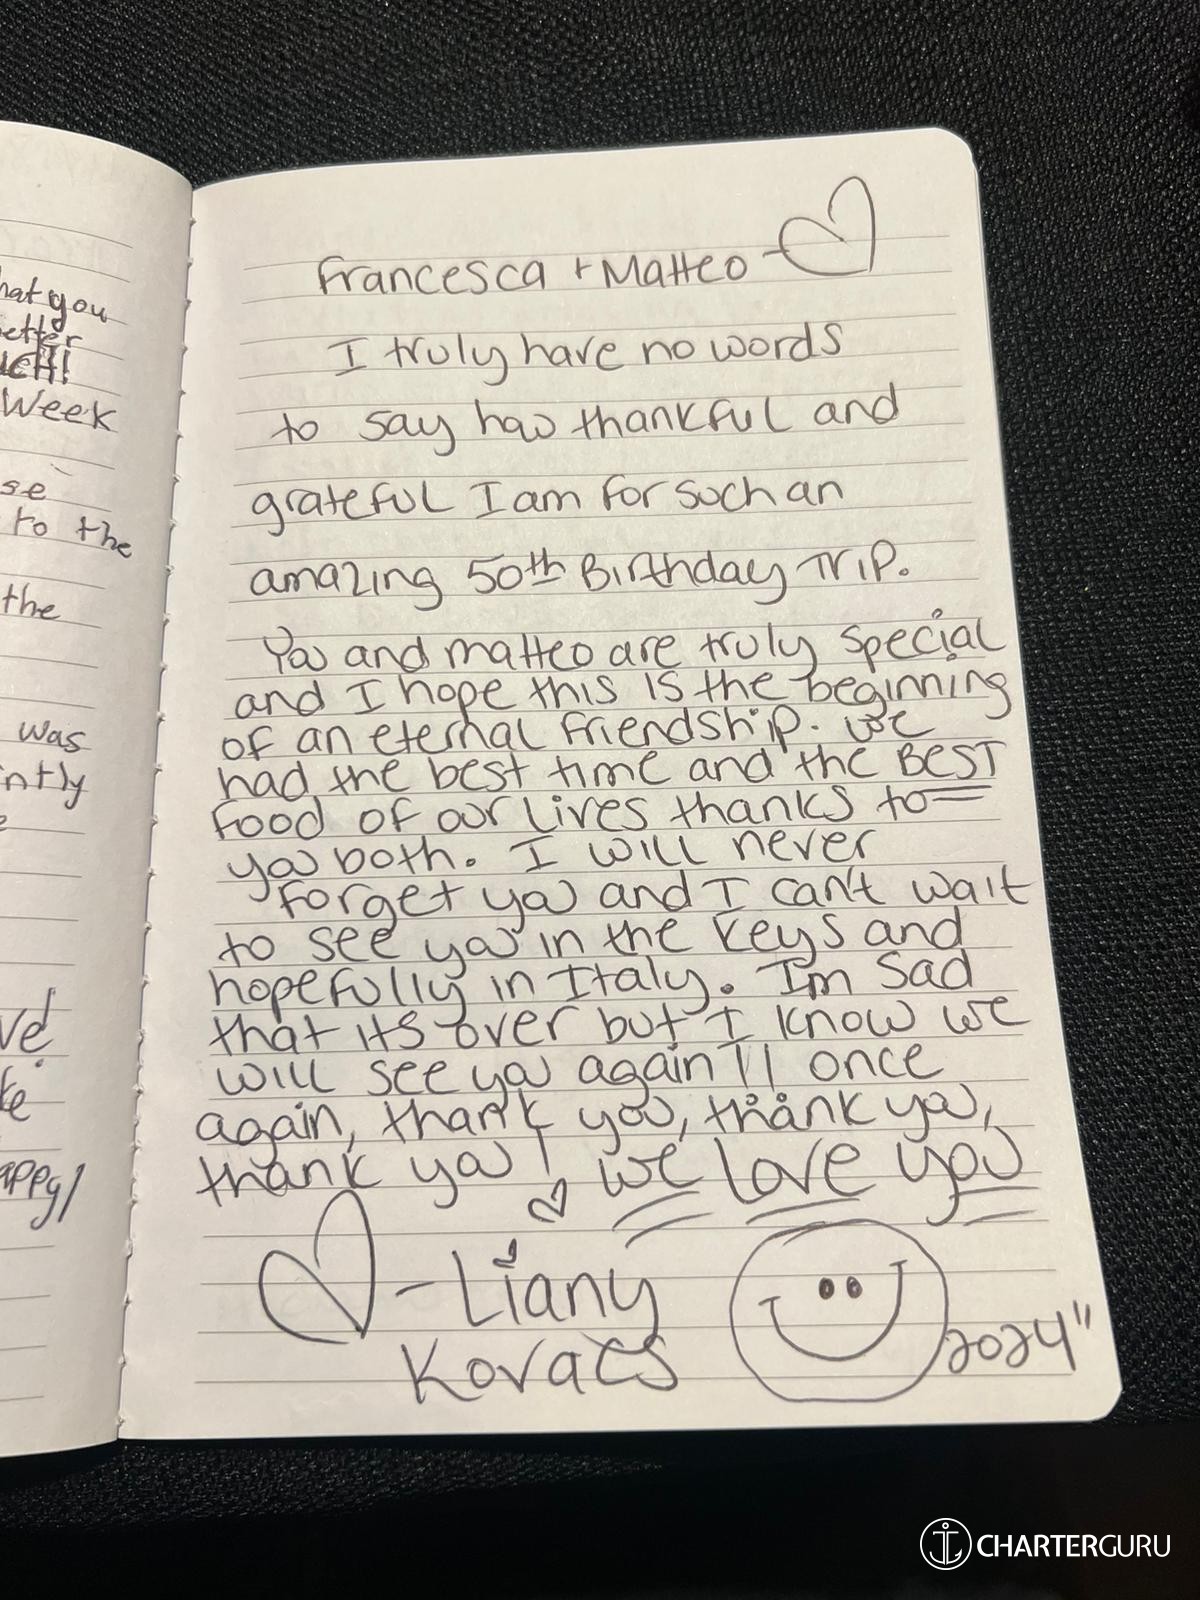 hat you
etter
UCH!
Week
se
to the
the
was
ntly
e
ve
ke
appy!
Francesca + Matteo -
I truly have no words
to say how thankful and
grateful I am for such an
amazing 50th Birthday Trip.
You and matteo are truly special
and I hope this is the beginning
of an eternal friendship. we
had the best time and the BEST
food of our lives thanks to
you both. I will never
forget you and I can't wait
to see you in the Keys and
hopefully in Italy. I'm sad
that its over but I know we
will see you again!! once
again, thank you, thank you,
thank you! we love you
- Liany
Kovacs
2024"
CHARTERGURU